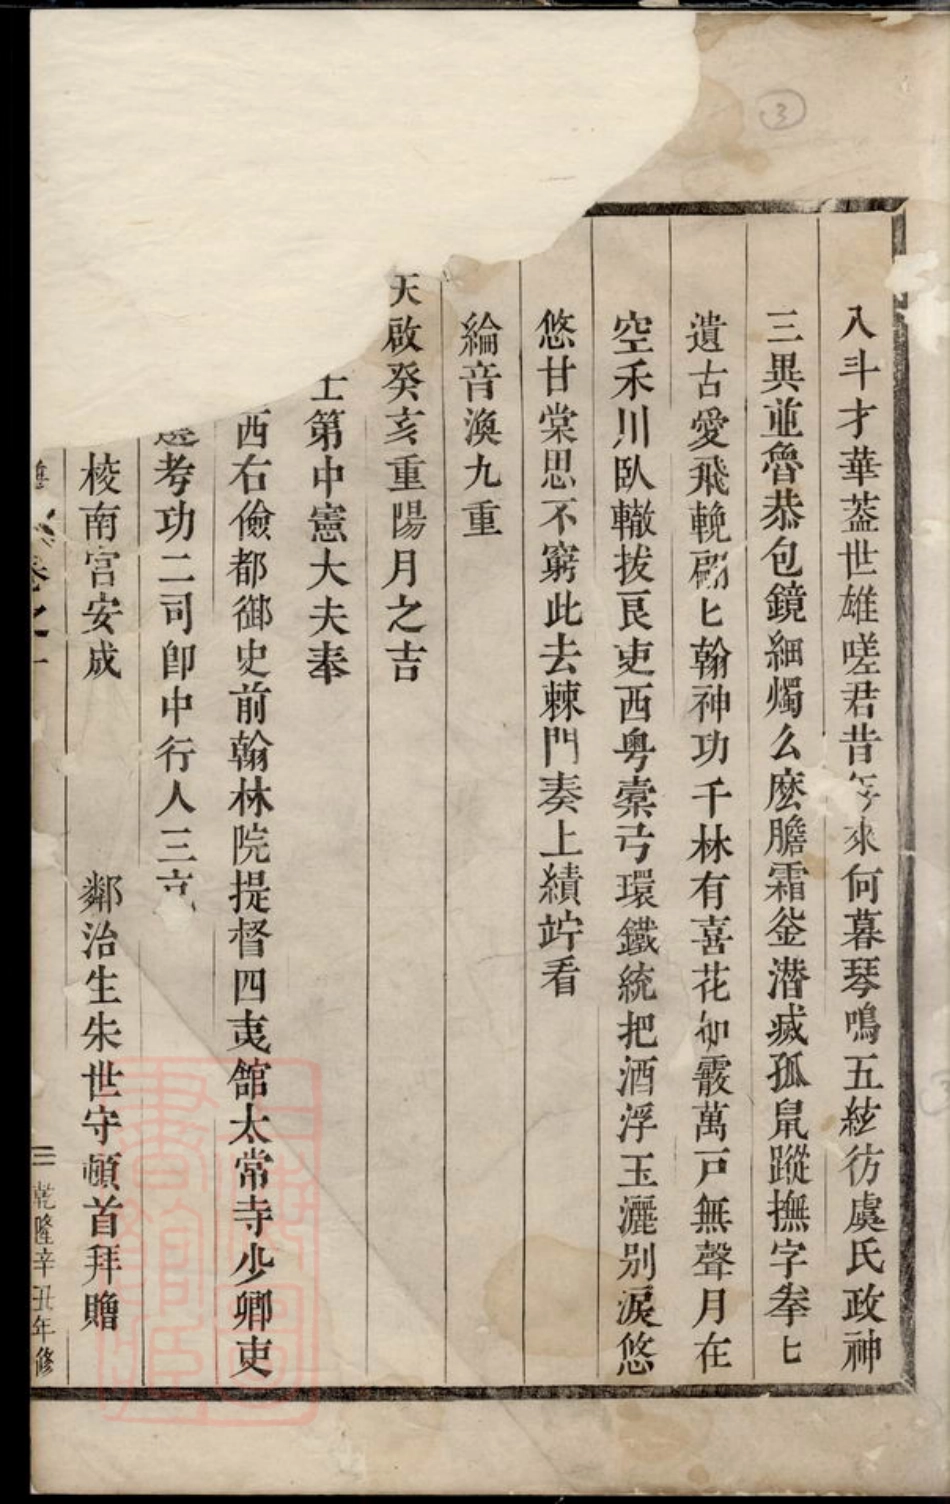 八斗才華葢世雄嗟君昔年來何暮琴鳴五絃彷虞氏政神
三異並魯恭包鏡細燭么麽膽霜釡潜㓕孤鼠蹤撫字拳匕
遺古愛飛輓翩匕翰神功千林有喜花如霰萬戸無聲月在
空禾川臥轍拔艮吏西粤櫜弓環鐵統把酒浮玉灑别淚悠
悠甘棠思不窮此去棘門奏上績竚看
綸音渙九重
天啟癸亥重陽月之吉
士第中憲大夫奉
西右儉都御史前翰林院提督四夷館太常寺少卿吏
考功二司卽中行人三
梭南宫安成 鄰治生朱世守頓首拜贈
卷之一 三 乾隆辛丑年修
3